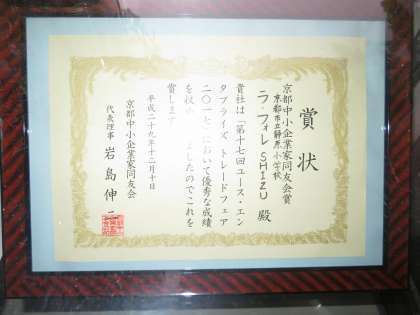 賞状
京都中小企業家同友会賞
京都市立静原小学校
ラ・フォレSHIZU 殿
貴社は「第十七回ユース・エン
タプライズ トレードフェア
二〇一七」において優秀な成績
を収め ましたのでこれを
賞します
平成二十九年十二月十日
京都中小企業家同友会
代表理事 岩島伸二